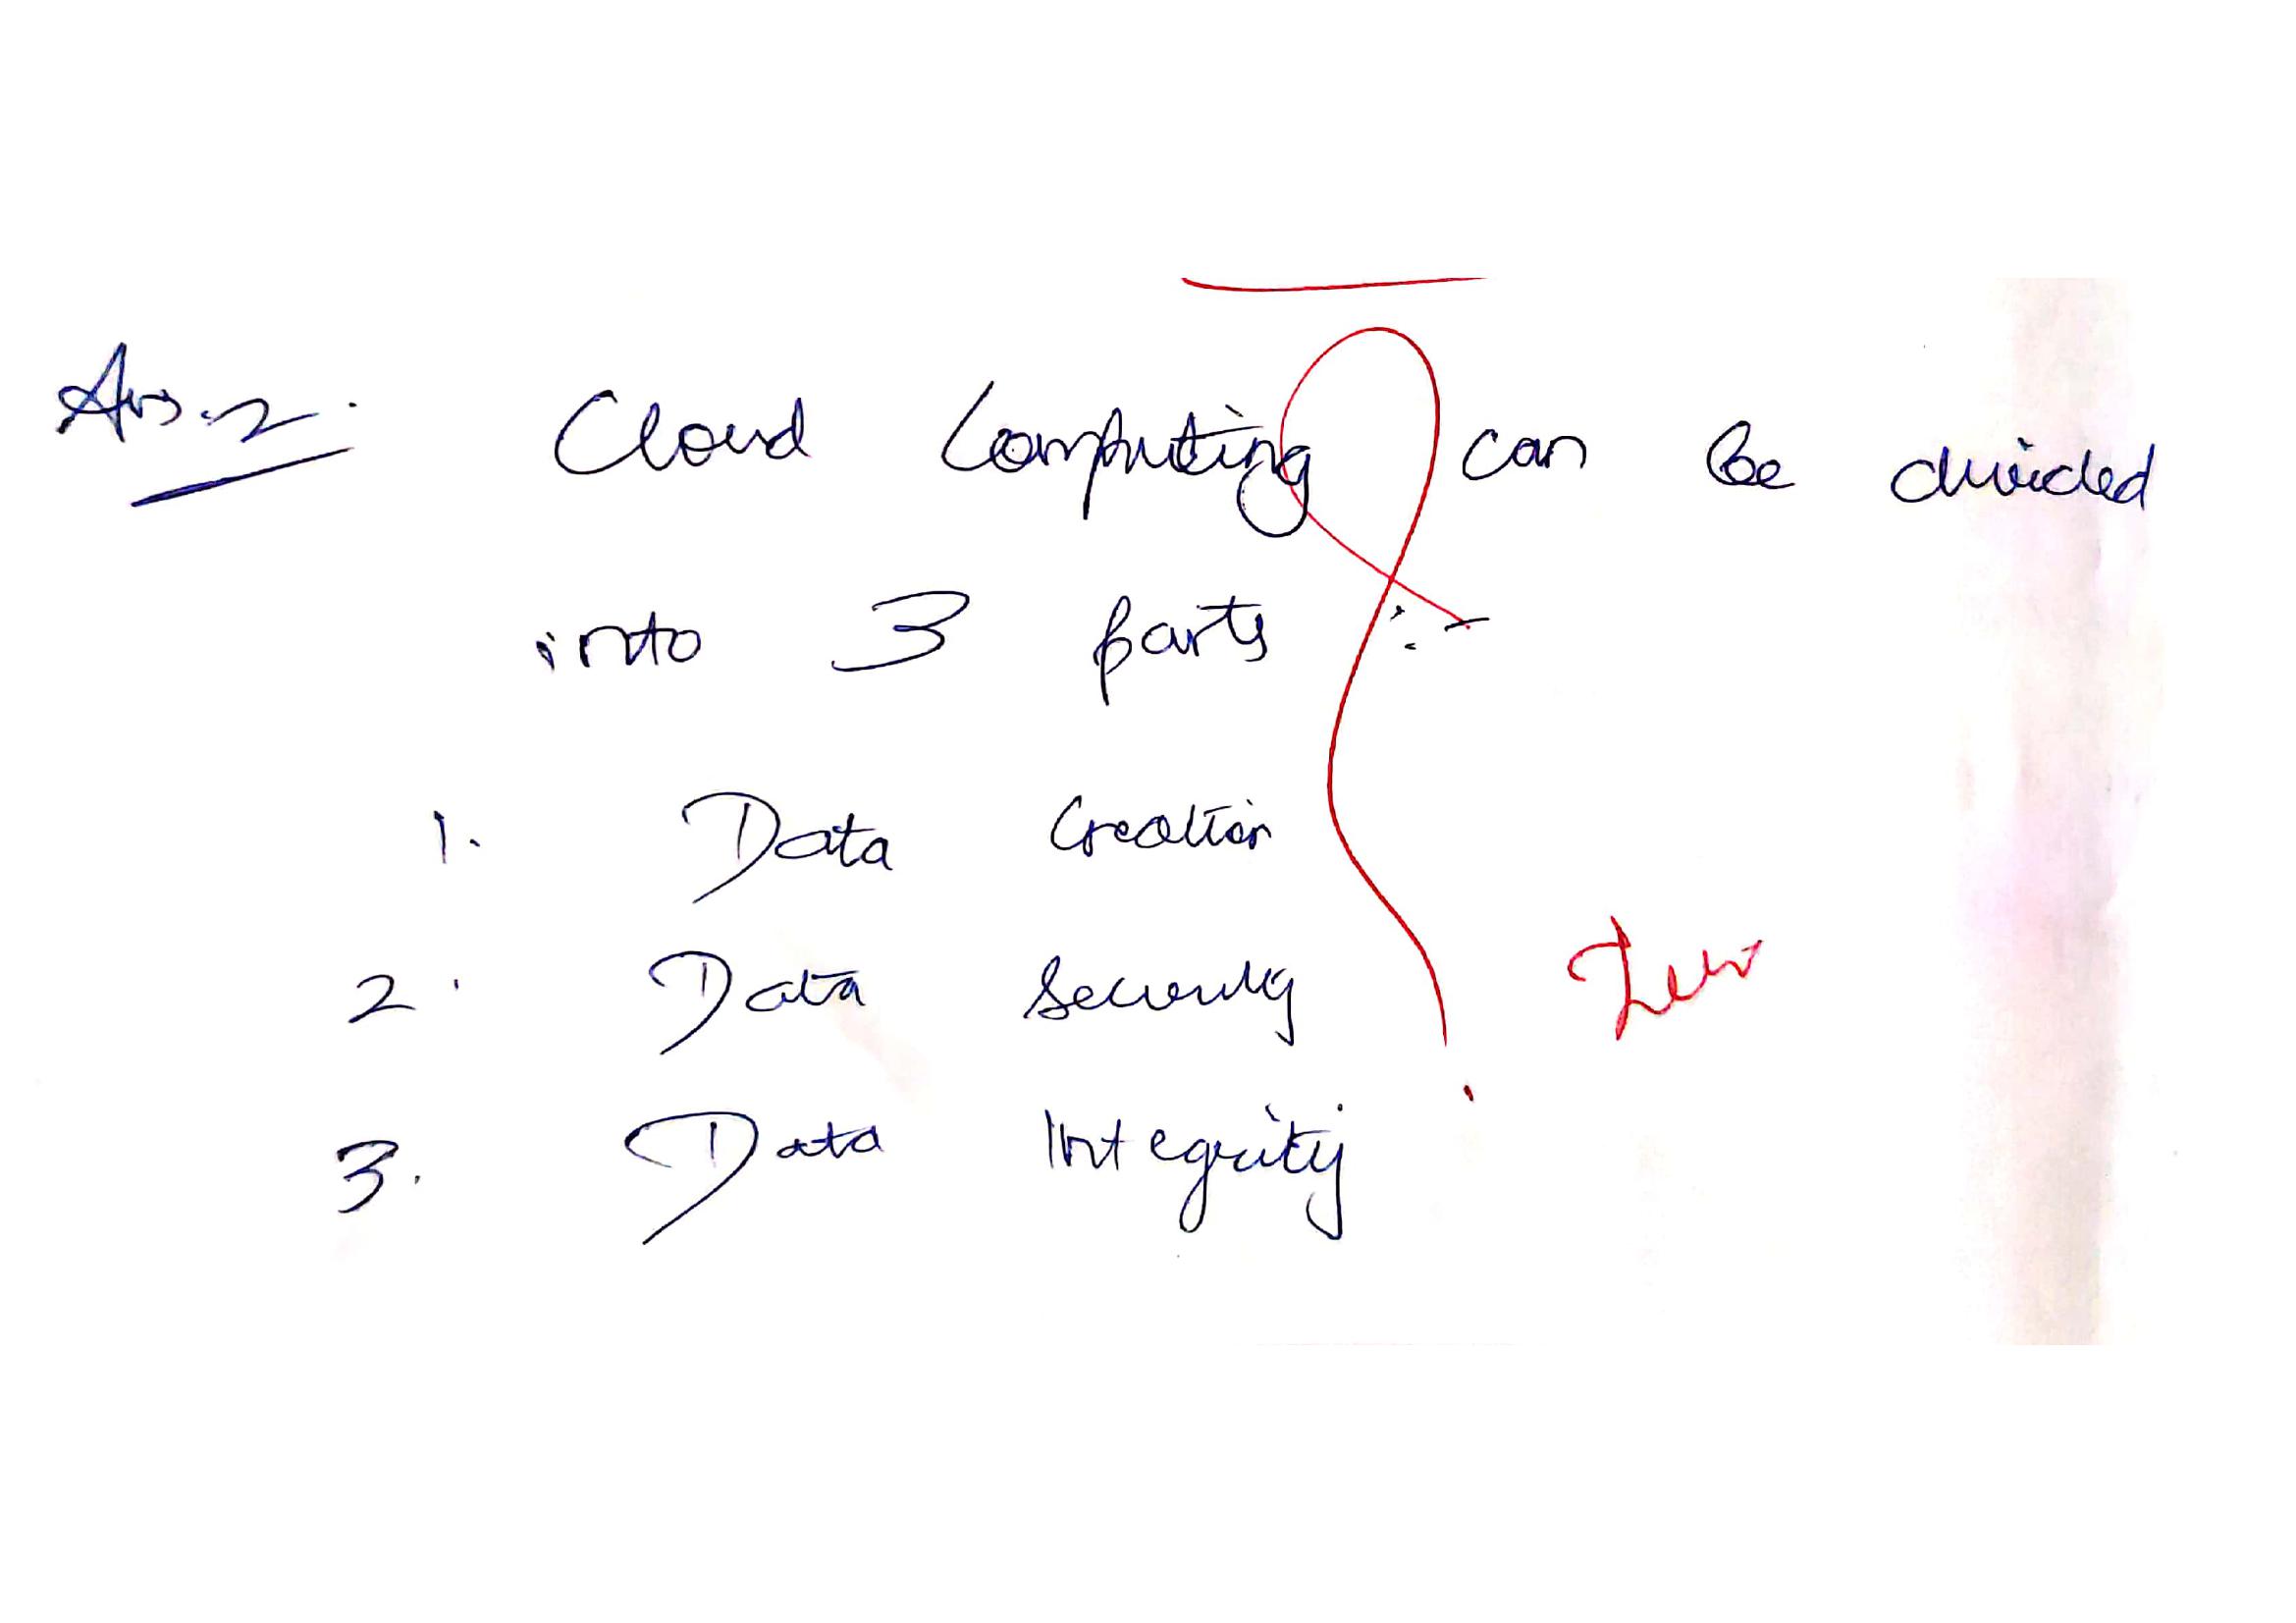 Ans.2. Cloud Computing can be divided
into 3 parts :-
1. Data Creation
2. Data Security
Zero
3. Data Integrity